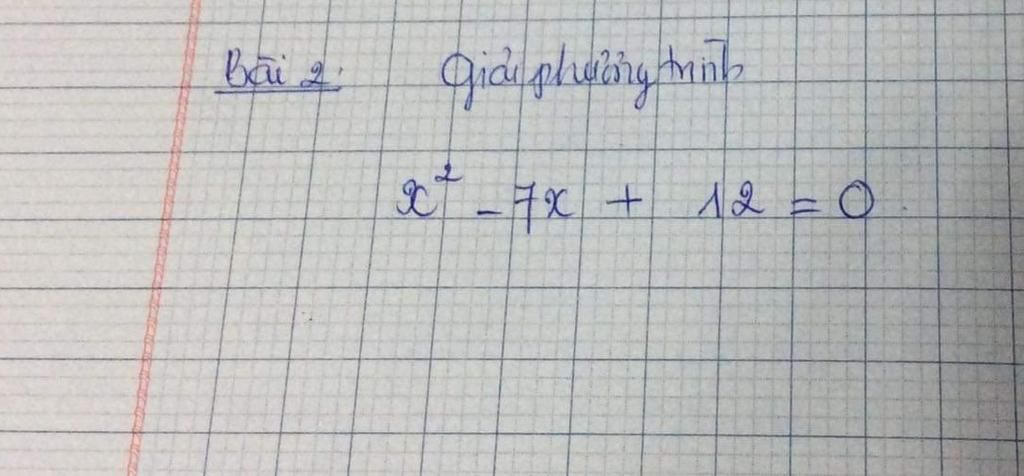 Bài 2. Giải phương trình
x² - 7x + 12 = 0